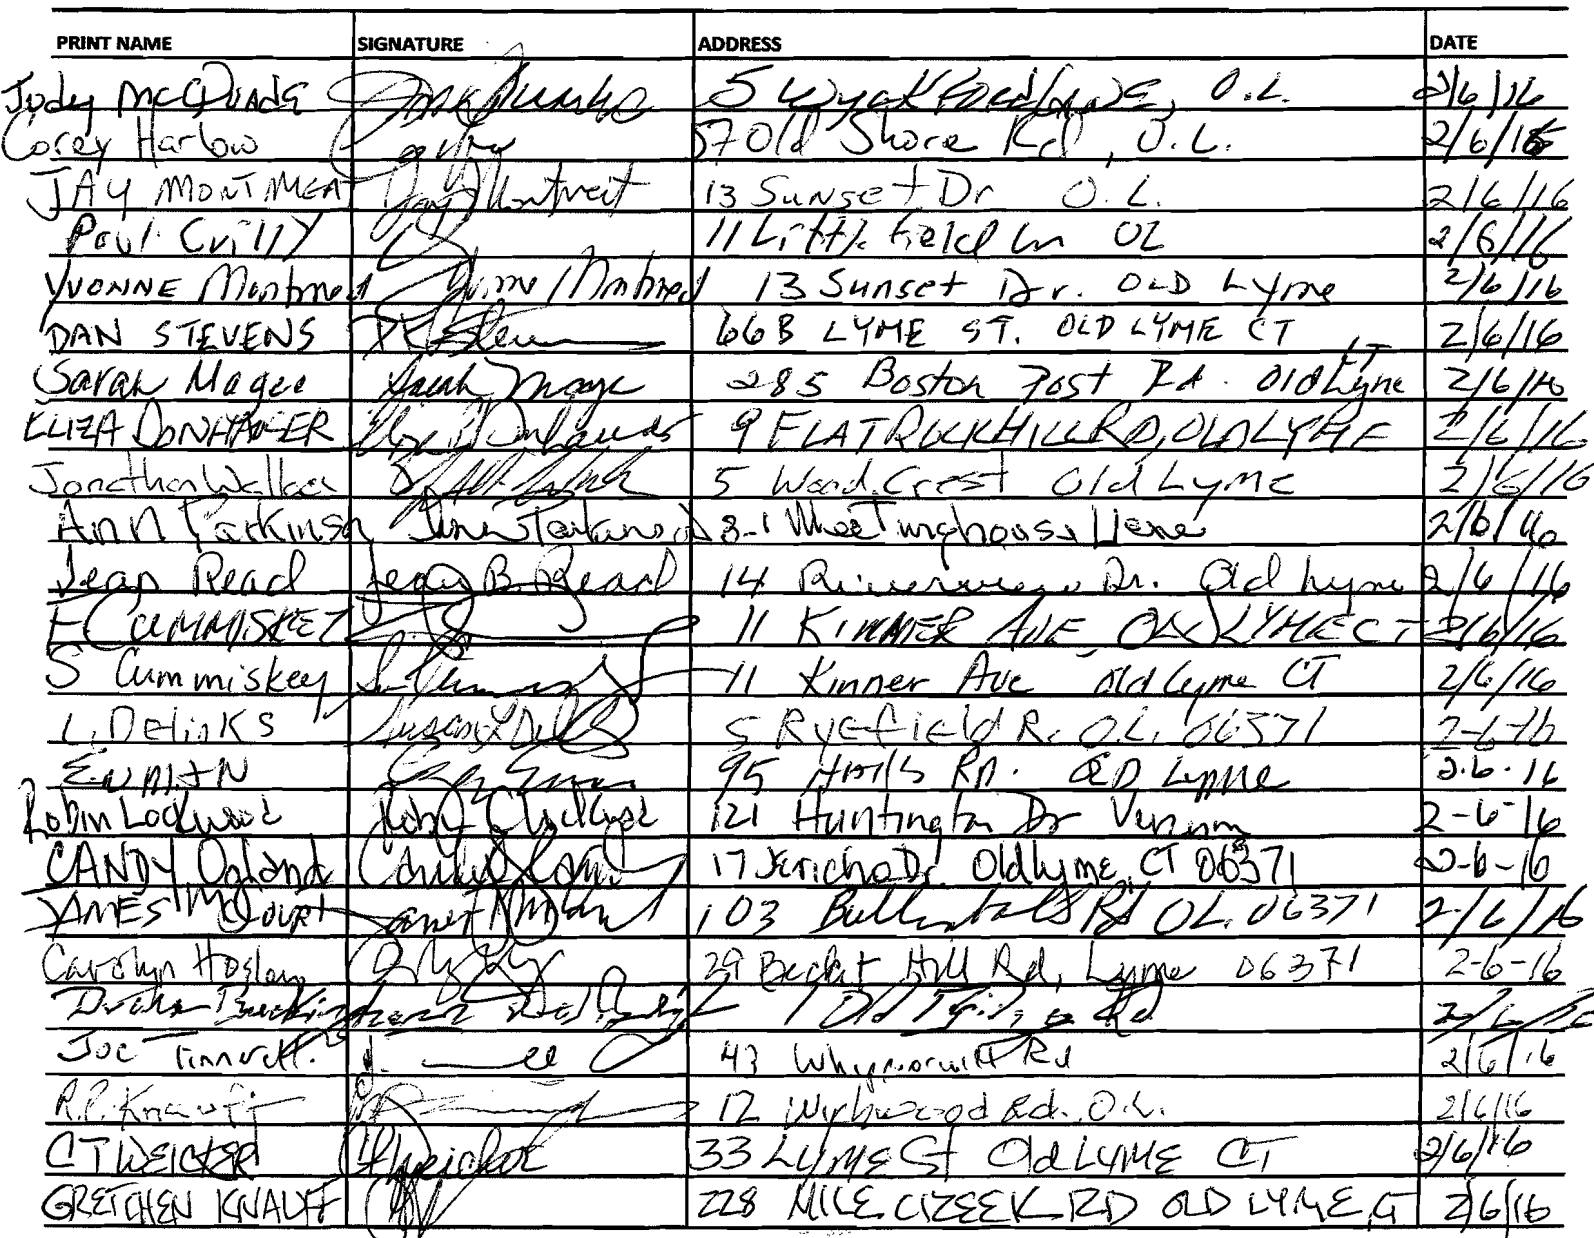 PRINT NAME SIGNATURE ADDRESS DATE
Jody McQuade 5 Wyckford Lane, O.L. 2/6/16
Corey Harlow 57 Old Shore Rd, O.L. 2/6/16
JAY MONTMEAT Jay Montmeat 13 Sunset Dr O.L. 2/6/16
Paul Crilly 11 Littlefield Ln OL 2/6/16
YVONNE Montmeat Yvonne Montmeat 13 Sunset Dr. OLD Lyme 2/6/16
DAN STEVENS 66B LYME ST. OLD LYME CT 2/6/16
Sarah Magee Sarah Magee 285 Boston Post Rd. Old Lyme CT 2/6/16
ELIZA DONHAUSER 9 FLAT ROCK HILL RD, OLD LYME 2/6/16
Jonathan Wallace 5 Wood Crest Old Lyme 2/6/16
Ann Parkinson 8-1 Meetinghouse Lane 2/6/16
Jean Read Jean B. Read 14 Dr. Old Lyme 2/6/16
E CUMMISKEY 11 KINNER AVE OLD LYME CT 2/6/16
S Cummiskey 11 Kinner Ave Old Lyme CT 2/6/16
L. Delinks 5 Ryefield R. O.L. 06371 2-6-16
95 Halls RD. OLD Lyme 2.6.16
Robin Lockwood 121 Huntington Dr Vernon 2-6-16
CANDY 17 Jericho Dr. Old Lyme, CT 06371 2-6-16
JAMES 103 Rd OL. 06371 2/6/16
Carolyn 29 Beckett Hill Rd, Lyme 06371 2-6-16
1 Old Rd 2/6/16
Joe 43 Whippoorwill Rd 2/6/16
R.P. Knauff 12 Wychwood Rd. O.L. 2/6/16
CT WEICKER CTWeicker 33 LYME St Old LYME CT 2/6/16
GRETCHEN KNAUFF 228 MILE CREEK RD OLD LYME, CT 2/6/16